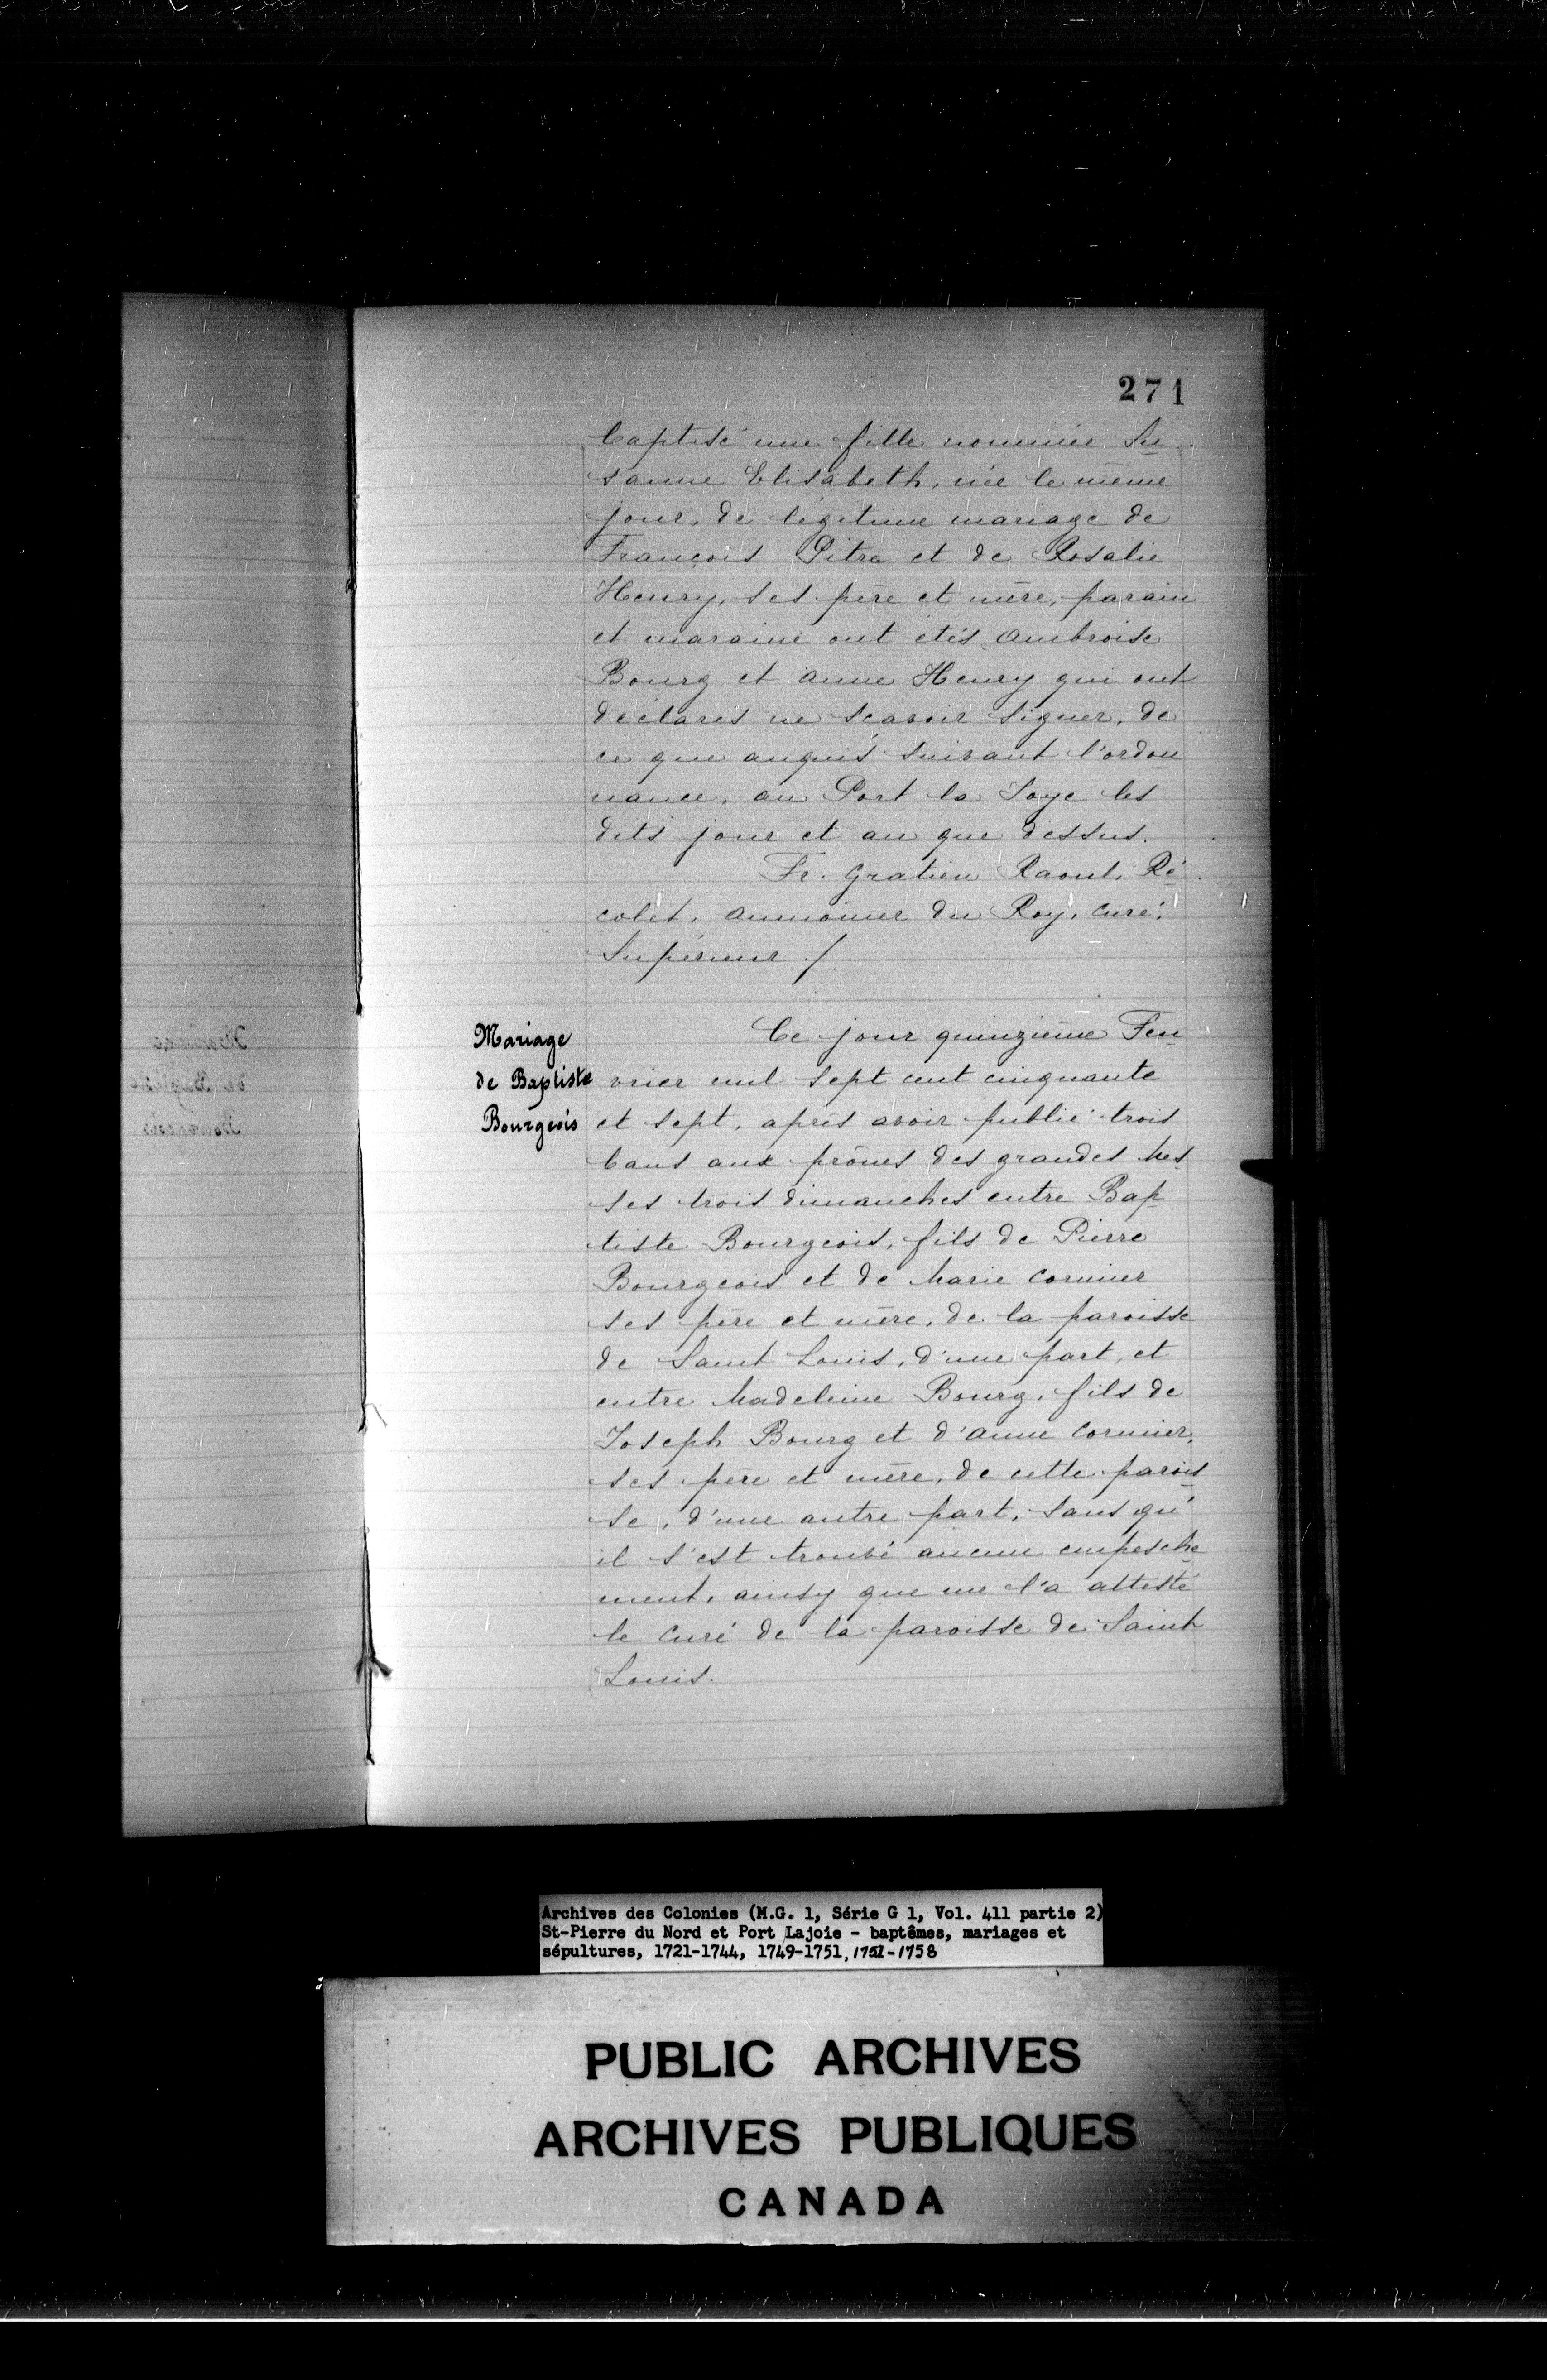 271
baptisé une fille nommée Su
sanne Elisabeth, née le même
jour, de légitime mariage de
François Pitre et de Rosalie
Henry, ses père et mère, parain
et maraine ont étés Ambroise
Bourg et Anne Henry qui ont
déclarés ne sçavoir signer, de
ce que anquis suivant l'ordon
nance, au Port la Joye les
dits jour et an que dessus.
Fr. Gratien Raoul, Ré
colet, aumônier du Roy, curé,
Supérieur /.
Mariage
de Baptiste
Bourgeois
Ce jour quinzième Feu
vrier mil sept cent cinquante
et sept, après avoir publié trois
bans aux prônes des grandes Mes
ses trois dimanches entre Bap
tiste Bourgeois, fils de Pierre
Bourgeois et de Marie Cormier
ses père et mère, de la paroisse
de Saint Louis, d'une part, et
entre Madeleine Bourg, fils de
Joseph Bourg et d'Anne Cormier,
ses père et mère, de cette parois
se, d'une autre part, sans qu'
il s'est trouvé aucun empesche
ment, ainsy que me l'a attesté
le curé de la paroisse de Saint
Louis.
Archives des Colonies (M.G. 1, Série G 1, Vol. 411 partie 2)
St-Pierre du Nord et Port Lajoie - baptêmes, mariages et
sépultures, 1721-1744, 1749-1751, 1751-1758
PUBLIC ARCHIVES
ARCHIVES PUBLIQUES
CANADA